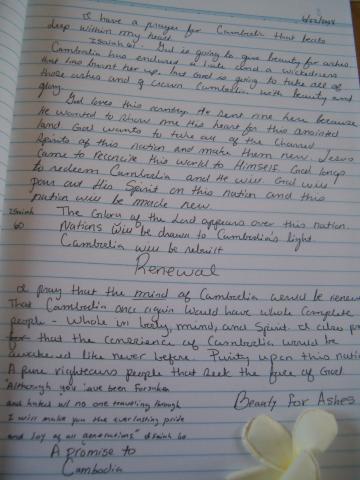 I have a prayer for Cambodia that beats
deep within my heart.
Isaiah 61. God is going to give beauty for ashes.
Cambodia has endured a hate and a wickedness
that has burnt her up, but God is going to take all of
those ashes and crown Cambodia with beauty and
glory.
God loves this country. He sent me here because
He wanted to show me His heart for this anointed
land. God wants to take all of the charred
spirits of this nation and make them new. Jesus
came to reconcile this world to Himself. God longs
to redeem Cambodia and He will. God will
pour out His Spirit on this nation and this
nation will be made new.
Isaiah The Glory of the Lord appears over this nation.
60 Nations will be drawn to Cambodia's light.
Cambodia will be rebuilt
Renewal
I pray that the mind of Cambodia would be renew
That Cambodia once again would have whole complete
people - Whole in body, mind, and Spirit. I also pr
for that the conscience of Cambodia would be
awakened like never before. Purity upon this natio
A pure righteous people that seek the face of God
"Although you have been forsaken
and hated w/ no one traveling through
I will make you the everlasting pride
and joy of all generations" Isaiah 60
Beauty for Ashes
A promise to
Cambodia